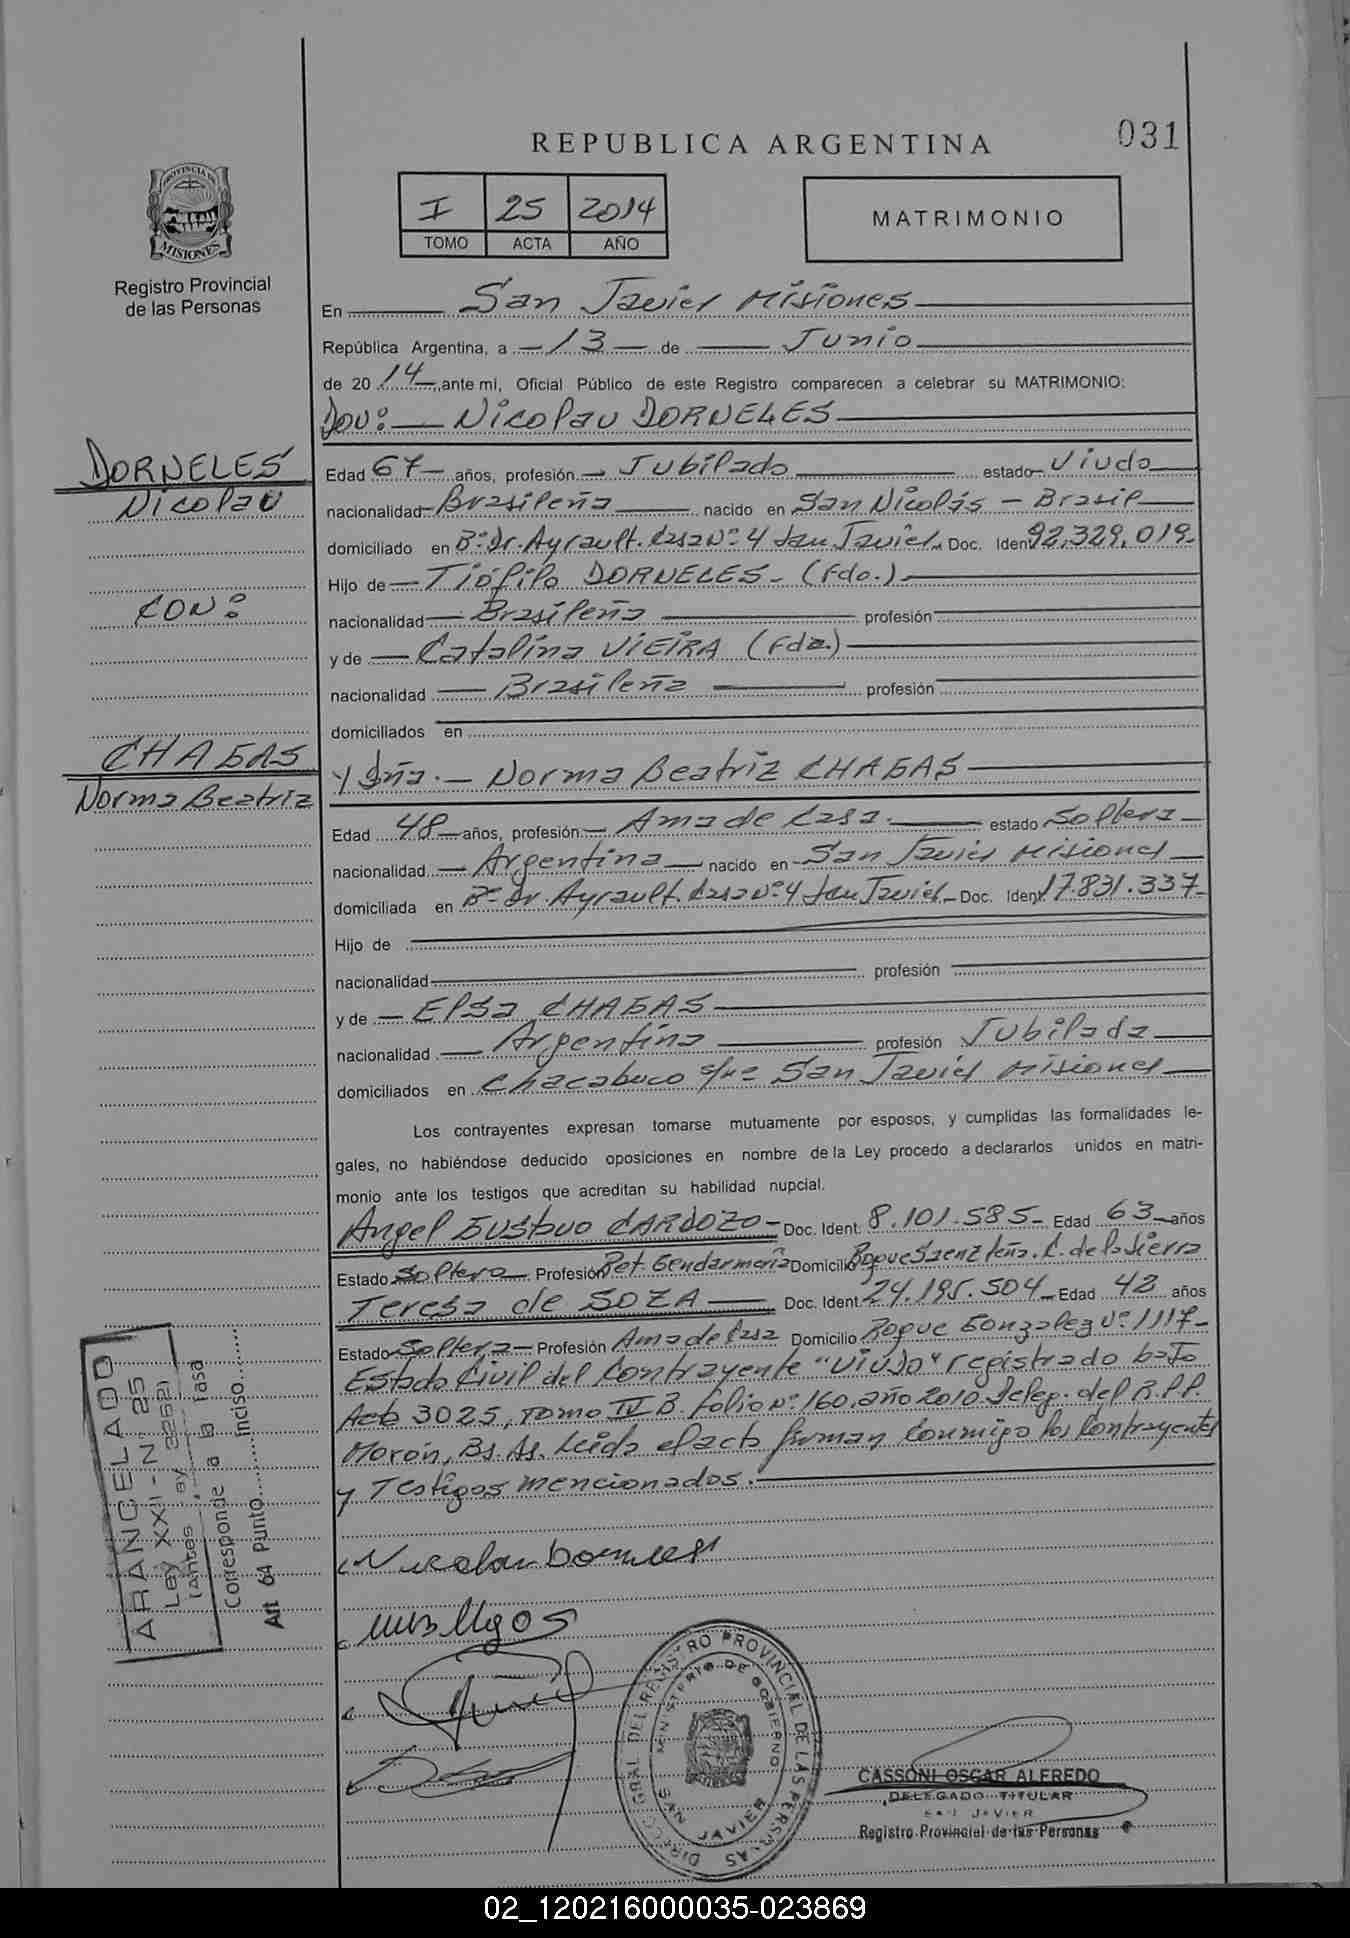 REPUBLICA ARGENTINA
031
I 25 2014
TOMO ACTA AÑO
MATRIMONIO
PROVINCIA DE
MISIONES
Registro Provincial
de las Personas
En San Javier Misiones
República Argentina, a 13 de Junio
de 2014, ante mi, Oficial Público de este Registro comparecen a celebrar su MATRIMONIO:
Don: Nicolau DORNELES
DORNELES
Nicolau
CON:
CHAGAS
Norma Beatriz
Edad 67 años, profesión Jubilado estado Viudo
nacionalidad Brasileña nacido en San Nicolás - Brasil
domiciliado en Bº Dr. Ayrault. Casa Nº 4 San Javier Doc. Iden 92.329.019
Hijo de Tiófilo DORNELES - (Fdo.)
nacionalidad Brasileña profesión
y de Catalina VIEIRA (Fda.)
nacionalidad Brasileña profesión
domiciliados en
Y Sña. Norma Beatriz CHAGAS
Edad 48 años, profesión Ama de Casa estado Soltera
nacionalidad Argentina nacido en San Javier Misiones
domiciliada en Bº Dr. Ayrault. Casa Nº 4 San Javier Doc. Ident 17.831.337
Hijo de
nacionalidad profesión
y de Elsa CHAGAS
nacionalidad Argentina profesión Jubilada
domiciliados en Chacabuco s/nº San Javier Misiones
Los contrayentes expresan tomarse mutuamente por esposos, y cumplidas las formalidades le-
gales, no habiéndose deducido oposiciones en nombre de la Ley procedo a declararlos unidos en matri-
monio ante los testigos que acreditan su habilidad nupcial.
Angel Gustavo CARDOZO Doc. Ident. 8.101.585 Edad 63 años
Estado Soltero Profesión Ret. Gendarmería Domicilio Roque Saenz Peña. C. de la Sierra
Teresa de SOZA Doc. Ident. 24.195.504 Edad 42 años
Estado Soltera Profesión Ama de Casa Domicilio Roque Gonzalez Nº 1117
Estado Civil del Contrayente "Viudo" registrado bajo
Acta 3025, Tomo IV B. folio Nº 160, año 2010 Deleg. del R.P.P.
Morón, Bs. As. Leída el acta firman conmigo los Contrayentes
y Testigos mencionados.
ARANCELADO
Ley XXII - Nº 25
(antes Ley 3262)
Corresponde a la Tasa
Art 64 Punto inciso
DIREC. GRAL. DEL REGISTRO PROVINCIAL DE LAS PERSONAS
MINISTERIO DE GOBIERNO
SAN JAVIER
CASSONI OSCAR ALFREDO
DELEGADO TITULAR
SAN JAVIER
Registro Provincial de las Personas
02_120216000035-023869